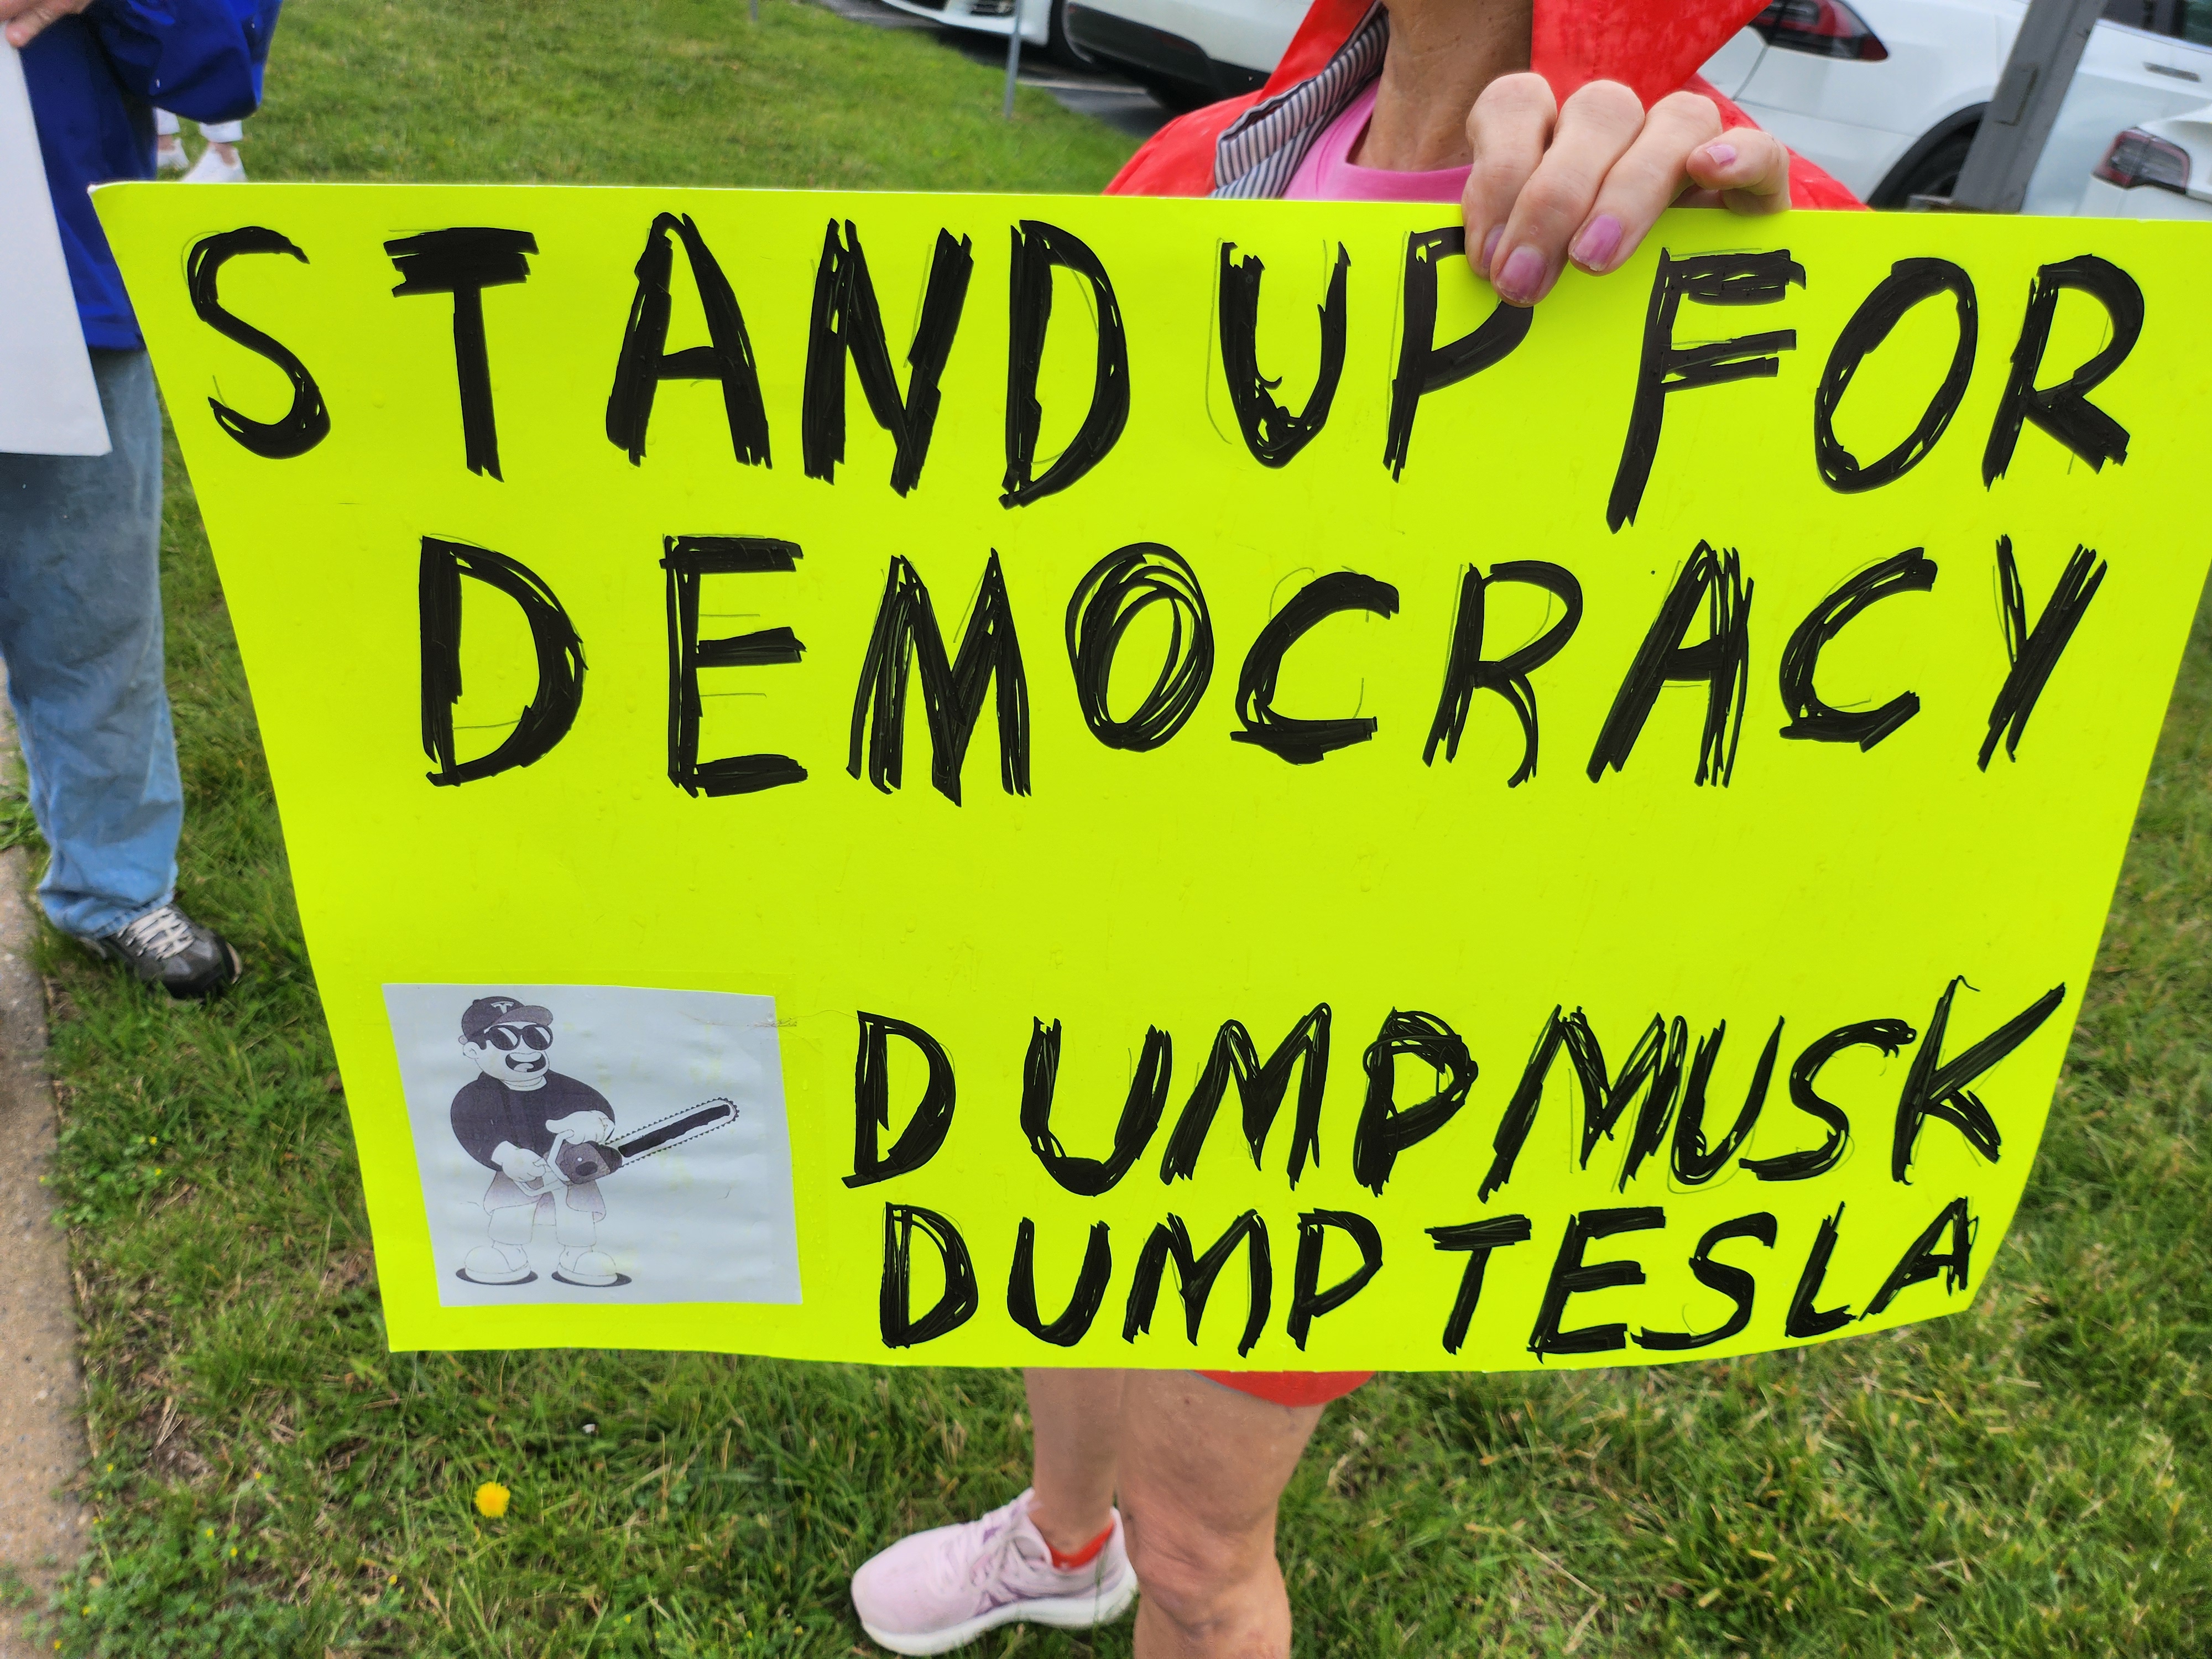 STAND UP FOR
DEMOCRACY
DUMP MUSK
DUMP TESLA